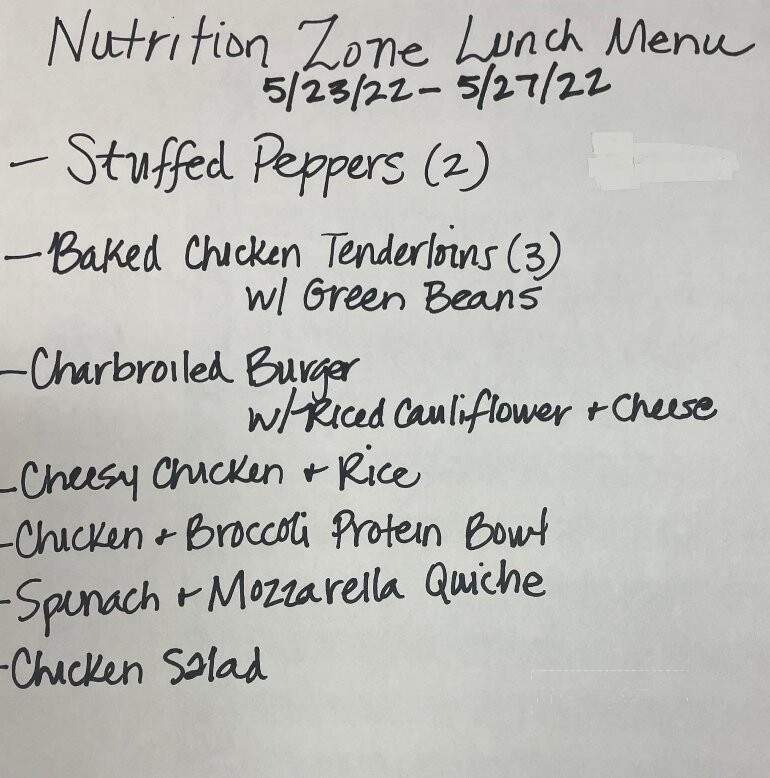 Nutrition Zone Lunch Menu
5/23/22 - 5/27/22
- Stuffed Peppers (2)
- Baked Chicken Tenderloins (3)
w/ Green Beans
- Charbroiled Burger
w/ Riced Cauliflower + Cheese
- Cheesy Chicken + Rice
- Chicken + Broccoli Protein Bowl
- Spinach + Mozzarella Quiche
- Chicken Salad